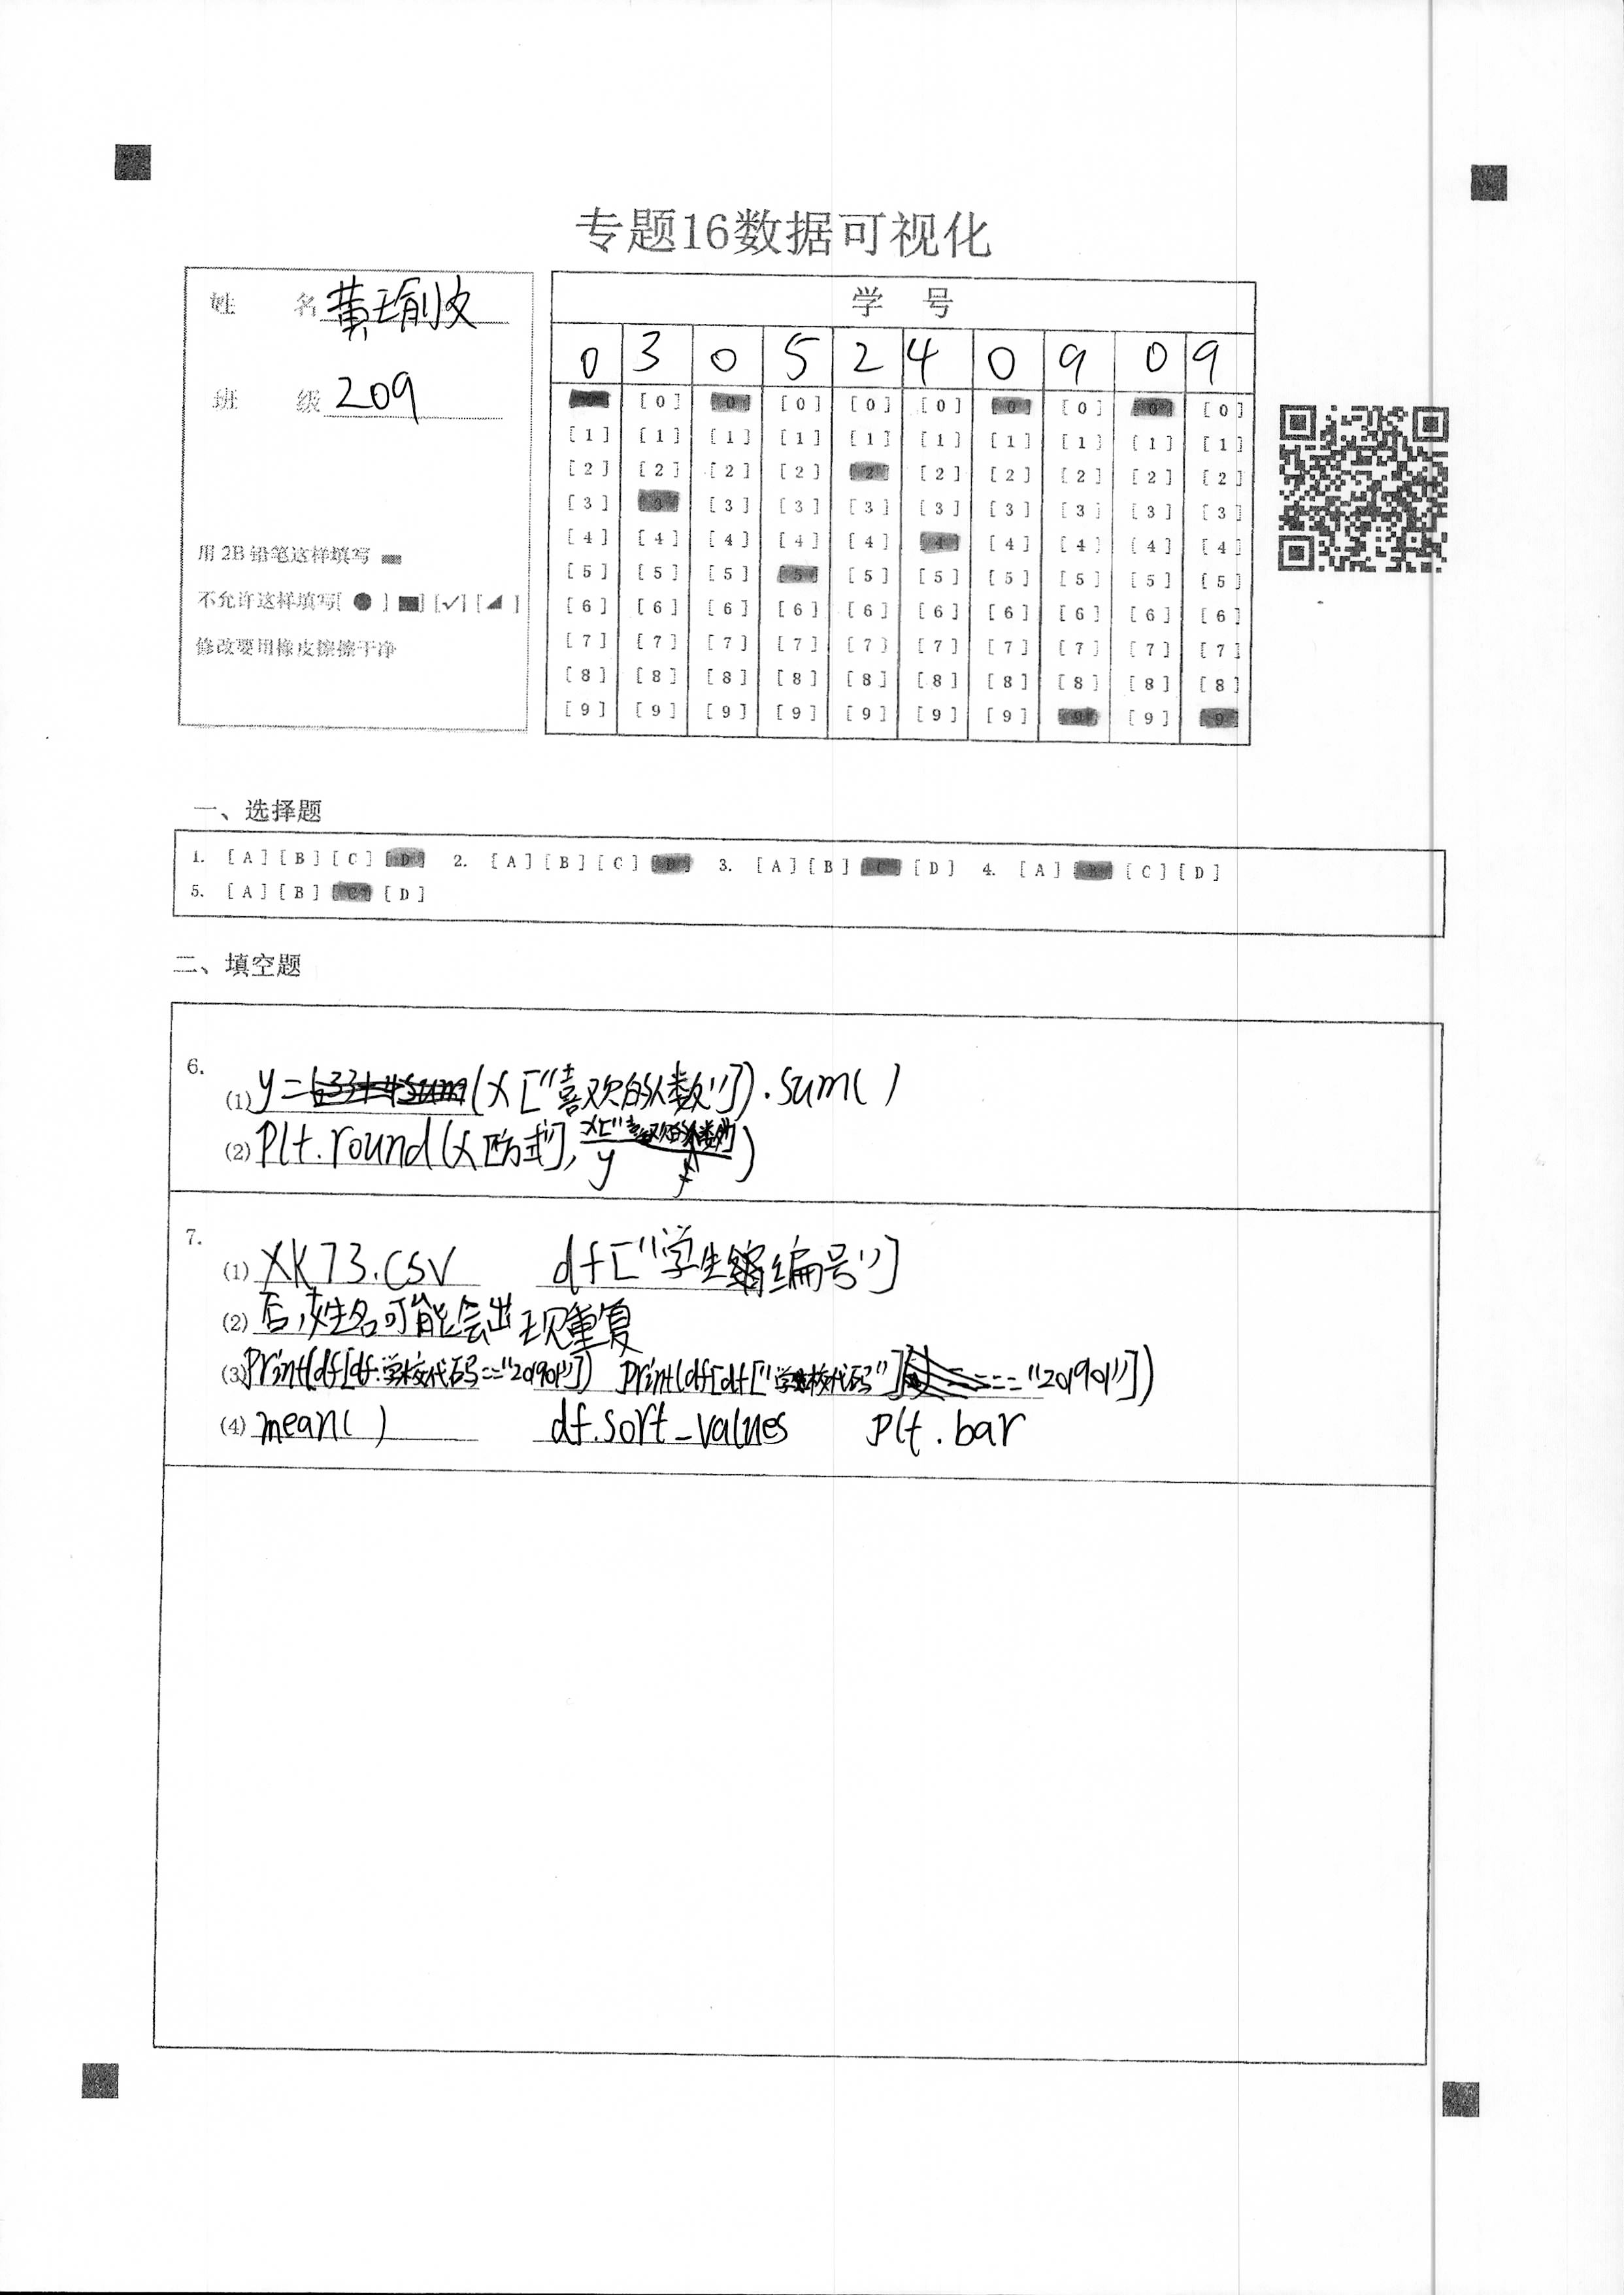 专题16数据可视化
姓 名 黄瑜波
班 级 209
用 2B 铅笔这样填写
不允许这样填写[ ● ] [■] [✓] [◢ ]
修改要用橡皮擦擦干净
学 号
0 3 0 5 2 4 0 9 0 9
[0] [0] [0] [0] [0] [0] [0] [0] [0] [0]
[1] [1] [1] [1] [1] [1] [1] [1] [1] [1]
[2] [2] [2] [2] [2] [2] [2] [2] [2] [2]
[3] [3] [3] [3] [3] [3] [3] [3] [3] [3]
[4] [4] [4] [4] [4] [4] [4] [4] [4] [4]
[5] [5] [5] [5] [5] [5] [5] [5] [5] [5]
[6] [6] [6] [6] [6] [6] [6] [6] [6] [6]
[7] [7] [7] [7] [7] [7] [7] [7] [7] [7]
[8] [8] [8] [8] [8] [8] [8] [8] [8] [8]
[9] [9] [9] [9] [9] [9] [9] [9] [9] [9]
一、选择题
1. [A] [B] [C] [D] 2. [A] [B] [C] [D] 3. [A] [B] [C] [D] 4. [A] [B] [C] [D]
5. [A] [B] [C] [D]
二、填空题
6.
(1) y=(x["喜欢的人数"]).sum()
(2) plt.round(x["方式"], y)
7.
(1) XK73.csv df["学生编号"]
(2) 否,姓名可能会出现重复
(3) print(df[df.学校代码=="201901"]) print(df[df["学校代码"]=="201901"])
(4) mean() df.sort_values plt.bar